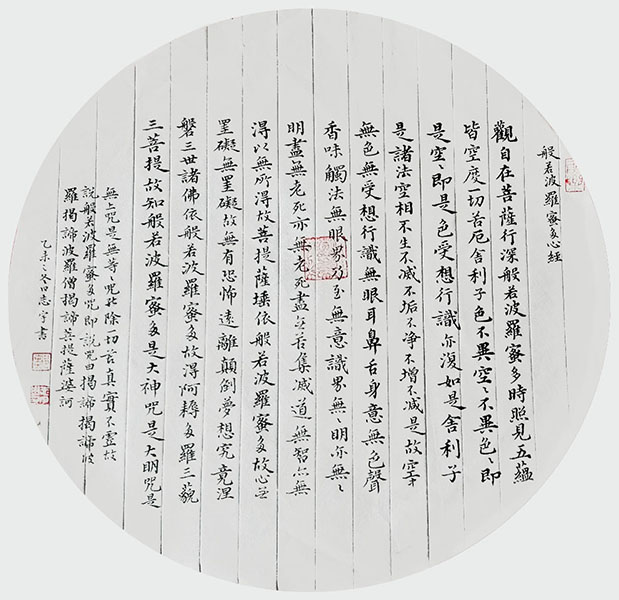 般若波羅蜜多心經
觀自在菩薩行深般若波羅蜜多時照見五蘊
皆空度一切苦厄舍利子色不異空〻不異色〻即
是空〻即是色受想行識亦復如是舍利子
是諸法空相不生不滅不垢不净不增不減是故空中
無色無受想行識無眼耳鼻舌身意無色聲
香味觸法無眼界乃至無意識界無〻明亦無〻
明盡無老死亦無老死盡無苦集滅道無智亦無
得以無所得故菩提薩埵依般若波羅蜜多故心無
罣礙無罣礙故無有恐怖遠離顛倒夢想究竟涅
磐三世諸佛依般若波羅蜜多故得阿耨多羅三藐
三菩提故知般若波羅蜜多是大神咒是大明咒是
無上咒是無等〻咒能除一切苦真實不虛故
說般若波羅蜜多咒即說咒曰揭諦揭諦波
羅揭諦波羅僧揭諦菩提薩婆訶
乙未之冬日志宇書